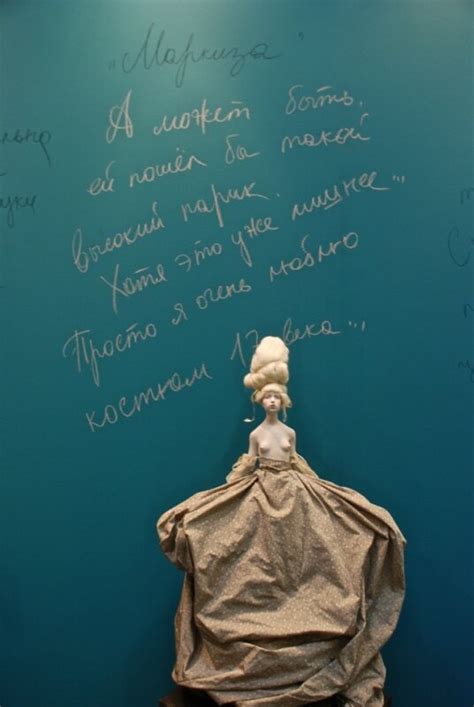 „Маркиза"
А может быть,
ей пошёл бы такой
высокий парик.
Хотя это уже лишнее...
Просто я очень люблю
костюм 17 века...